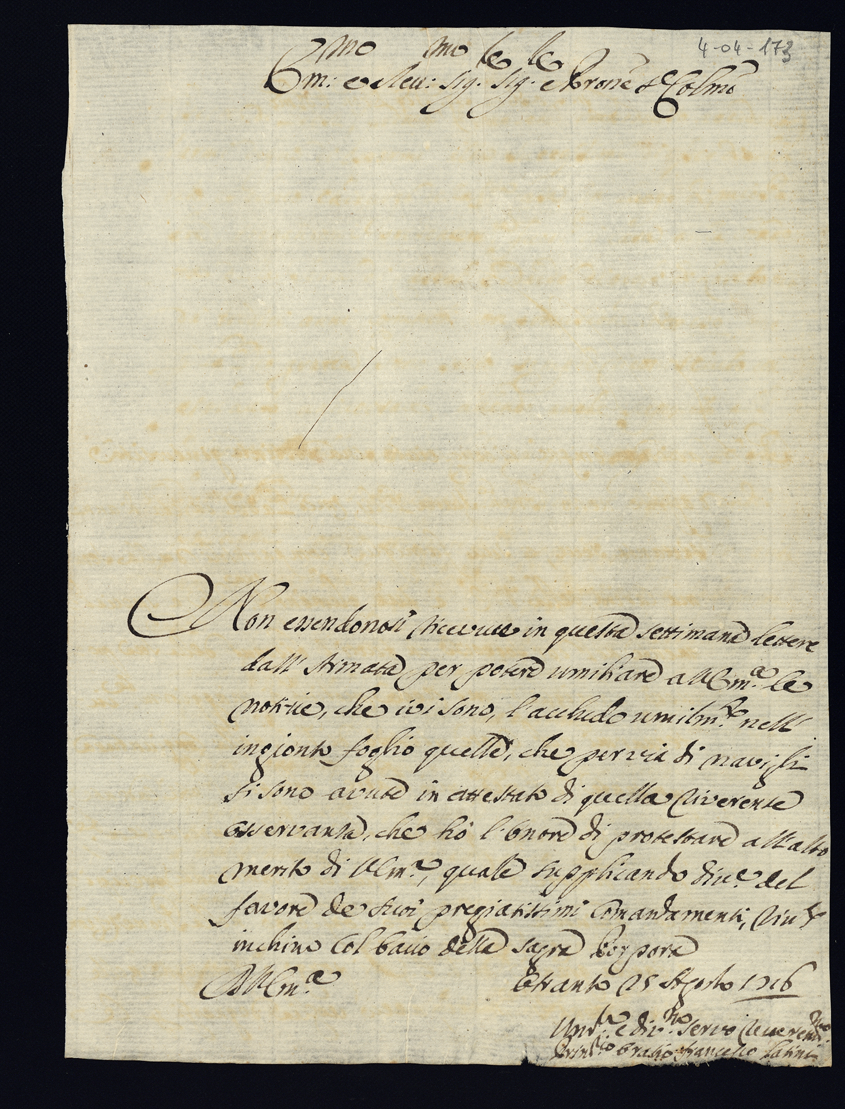 4-04-173
Em:mo e Reu:mo Sig.re Sig.re e Prone Colmo
Non essendonosi riceuute in questa settimana lettere
dall'Armata per potere umiliare a VEm.a le
notizie, che iui sono, l'accludo umilm.te nell'
ingionto foglio quelle, che per via di nauigli
si sono avute in attestato di quella riuerente
osservanza, che hò l'onore di protestare all'alto
merito di VEm.a, quale supplicando del
favore de suoi pregiatissimi Comandamenti,
inchino col bacio della sagra Porpora
Di VEm.a Otranto 25 Agosto 1716
Um.mo e div.mo Servo Riuerend.mo
Oratio Francesco Latini